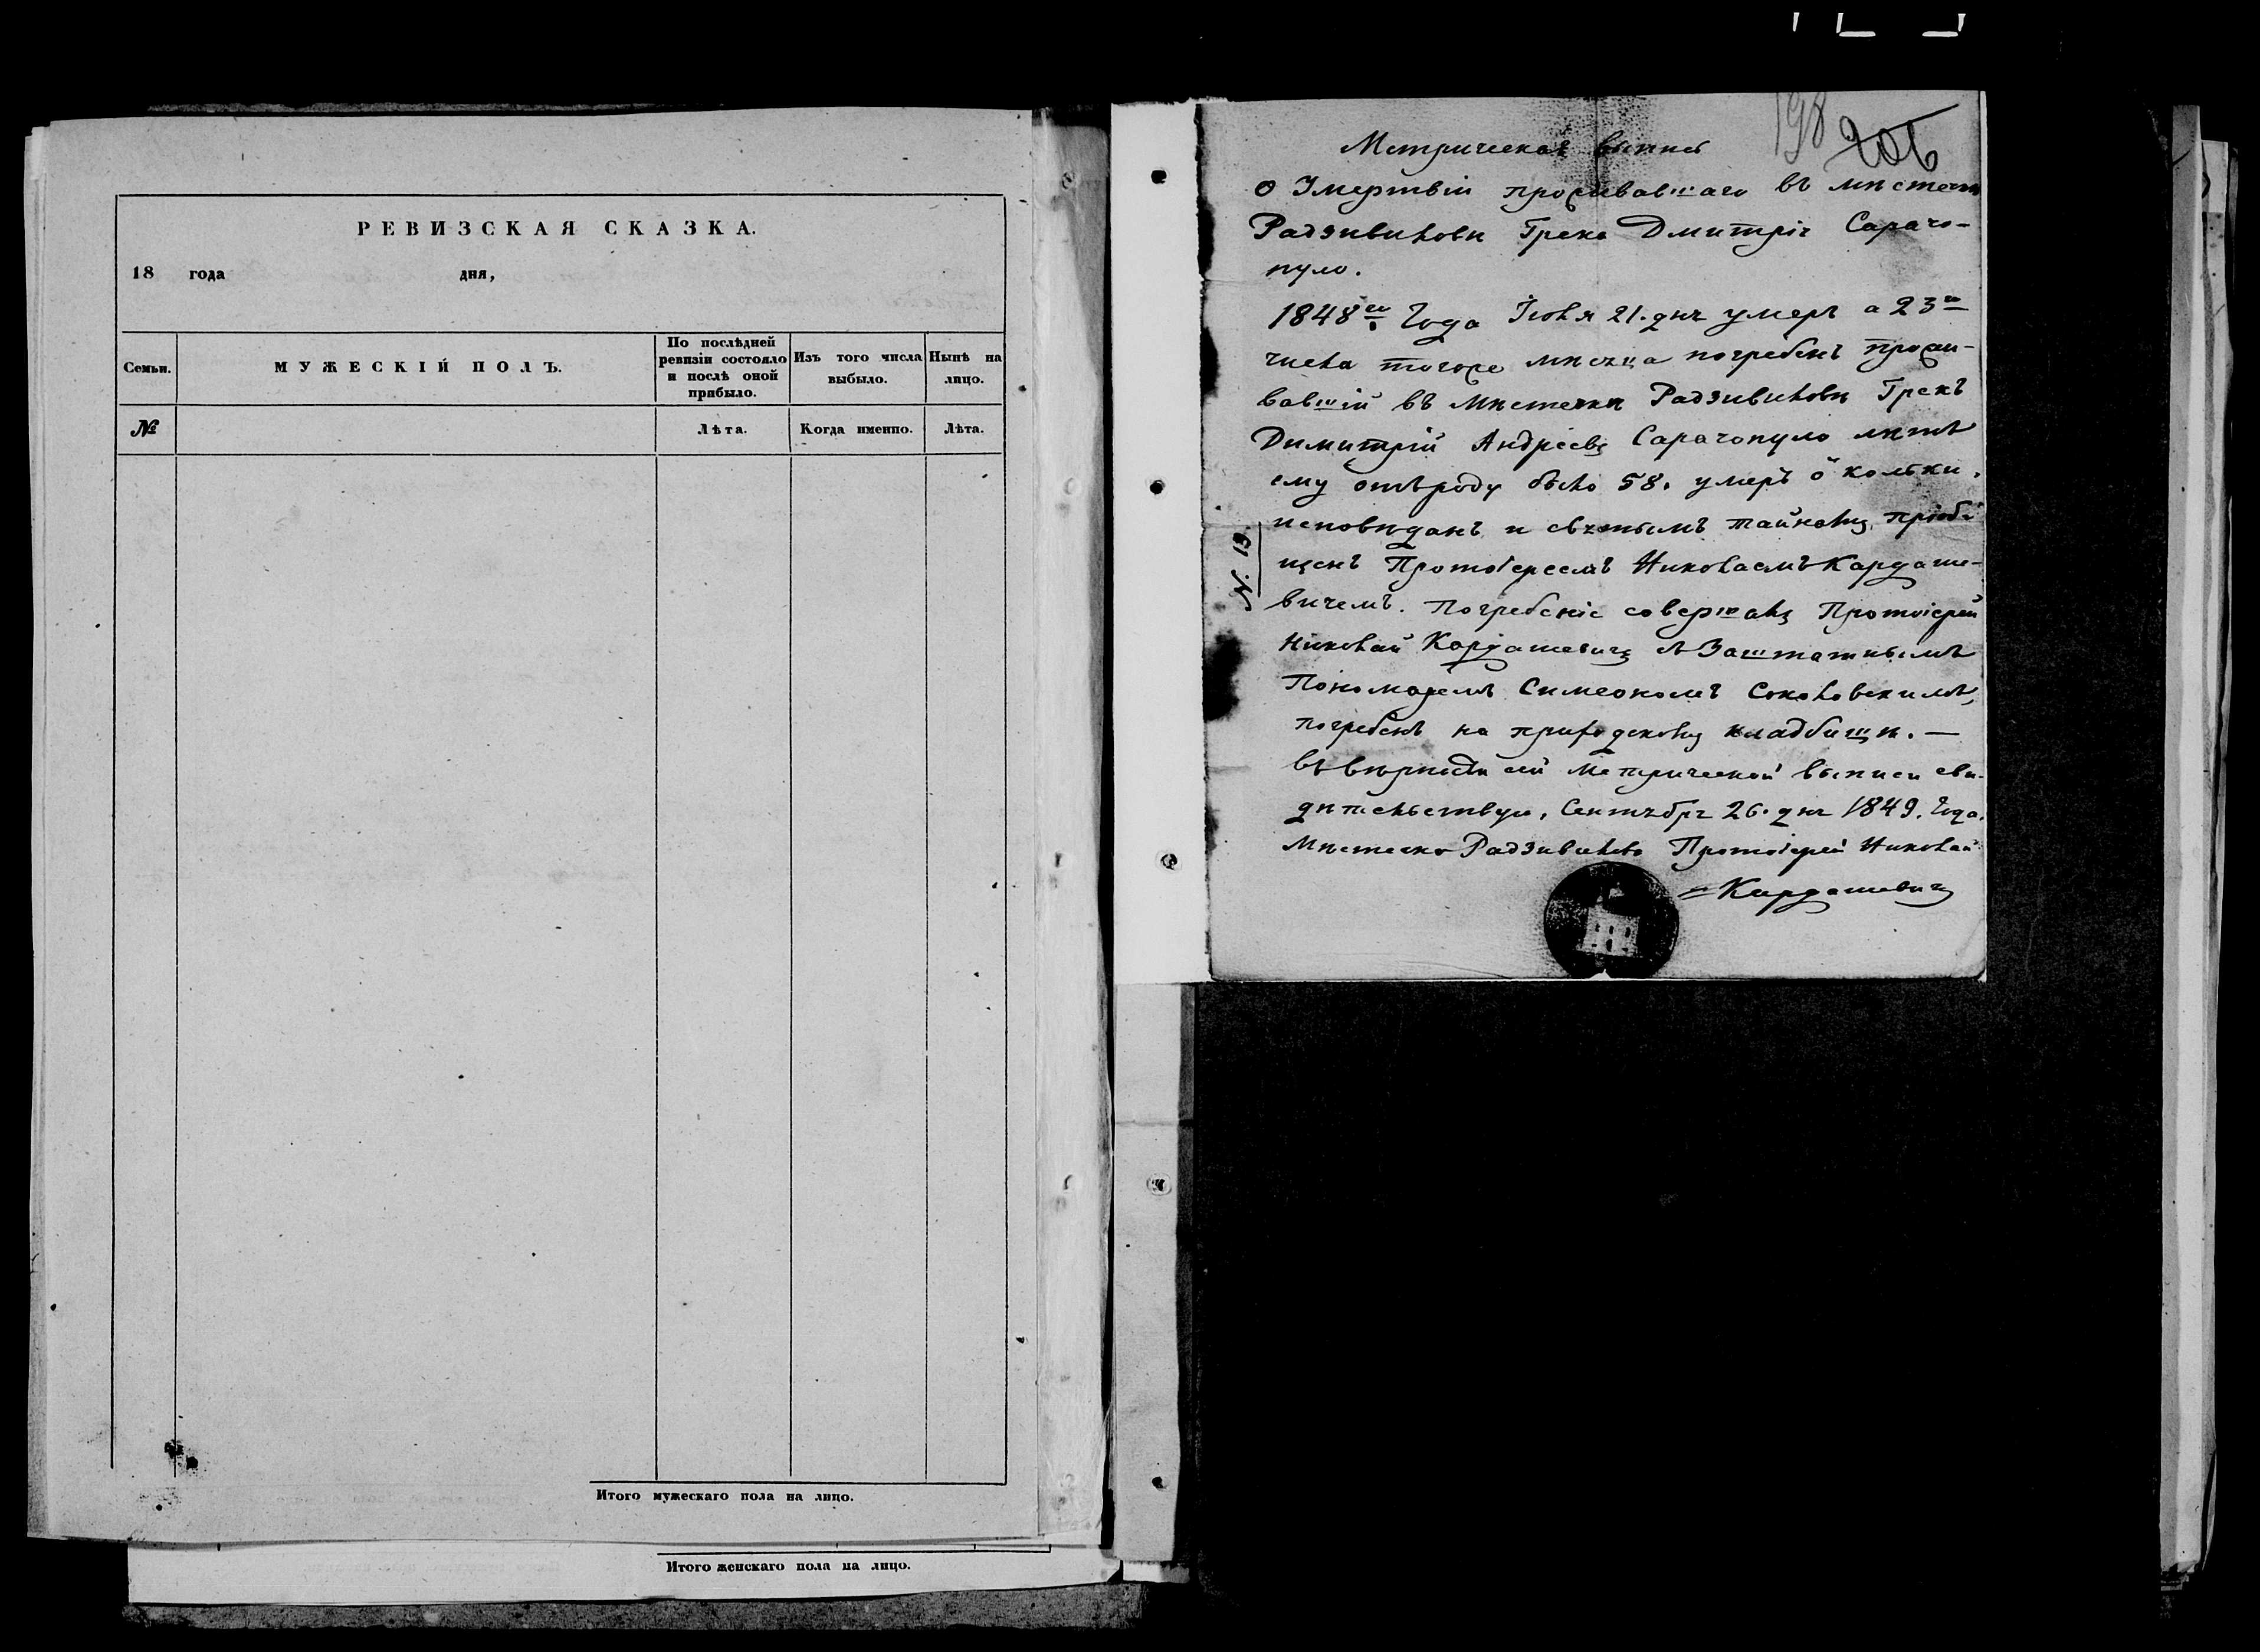 РЕВИЗСКАЯ СКАЗКА.
18 года дня,
Семьи.
МУЖЕСКІЙ ПОЛЪ.
По послѣдней ревизіи состояло и послѣ оной прибыло.
Изъ того числа выбыло.
Нынѣ на лицо.
№
Лѣта.
Когда именно.
Лѣта.
Итого мужескаго пола на лицо.
Итого женскаго пола на лицо.
198 206
Метрическая выпись
о Умертвіи проживавшаго въ мѣстечкѣ
Радзивиловѣ Грека Дмитрія Сарачо-
пуло.
1848го Года Іюня 21. дня умеръ а 23го
числа тогоже мѣсяца погребенъ прожи-
вавшій въ мѣстечкѣ Радзивиловѣ Грекъ
Димитрій Андреевъ Сарачопуло лѣтъ
ему отъ роду было 58. умеръ о колѣки,
исповѣданъ и святымъ тайнамъ пріоб-
щенъ Протоіереемъ Николаемъ Кардаше-
вичемъ. Погребеніе совершалъ Протоіерей
Николай Кардашевичъ съ Заштатнымъ
Пономаремъ Симеономъ Соколовскимъ,
погребенъ на приходскомъ кладбищѣ. —
N. 19.
Въ вѣрности сей метрической выписи сви-
дѣтельствую, Сентября 26. дня 1849. Года.
Мѣстечко Радзивилово Протоіерей Николай
Кардашевичъ